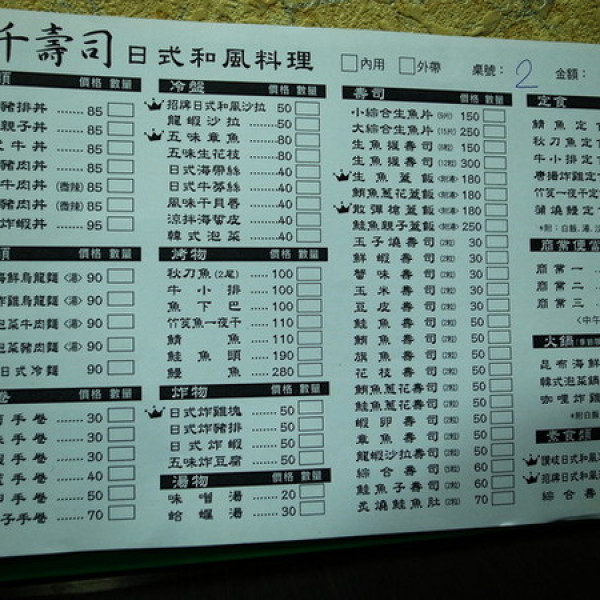 千壽司 日式和風料理 □內用 □外帶 桌號： 2 金額：
價格 數量
豬排丼 85
親子丼 85
牛丼 85
豬肉丼 85
牛肉丼 (香辣) 85
豬肉丼 (香辣) 85
炸蝦丼 95
價格 數量
海鮮烏龍麵 <湯> 90
炸雞烏龍麵 <湯> 90
泡菜牛肉麵 <湯> 90
泡菜豬肉麵 <湯> 90
日式冷麵 90
卷 價格 數量
手卷 30
手卷 30
手卷 30
手卷 40
手卷 50
子手卷 70
冷盤 價格 數量
招牌日式和風沙拉 50
龍蝦沙拉 50
五味章魚 80
五味生花枝 80
日式海帶絲 40
日式牛蒡絲 40
風味干貝唇 40
涼拌海蜇皮 40
韓式泡菜 40
烤物 價格 數量
秋刀魚(2尾) 100
牛小排 100
魚下巴 100
竹筴魚一夜干 110
鯖魚 110
鮭魚頭 190
鰻魚 280
炸物 價格 數量
日式炸雞塊 50
日式炸豬排 50
日式炸蝦 50
五味炸豆腐 50
湯物 價格 數量
味噌湯 20
蛤蠣湯 30
壽司 價格 數量
小綜合生魚片 (9片) 150
大綜合生魚片 (15片) 250
生魚握壽司 (6粒) 150
生魚握壽司 (12粒) 300
生魚蓋飯 <附湯> 180
鮪魚蔥花蓋飯 <附湯> 180
散彈槍蓋飯 <附湯> 180
鮭魚親子蓋飯 <附湯> 250
玉子燒壽司 (2粒) 30
鮮蝦壽司 (2粒) 30
蟹味壽司 (2粒) 30
玉米壽司 (2粒) 30
豆皮壽司 (2粒) 30
鮭魚壽司 (2粒) 50
鮪魚壽司 (2粒) 50
旗魚壽司 (2粒) 50
花枝壽司 (2粒) 50
鮪魚蔥花壽司 (2粒) 50
鮭魚蔥花壽司 (2粒) 50
蝦卵壽司 (2粒) 50
章魚壽司 (2粒) 50
龍蝦沙拉壽司 (2粒) 50
綜合壽司 (6粒) 60
鮭魚子壽司 (2粒) 60
炙燒鮭魚肚 (2粒) 70
定食
鯖魚定食
秋刀魚定
牛小排定
唐揚炸雞定
竹筴一夜干定
蒲燒鰻定食
*附：白飯,湯,
商業便當
商業一
商業二
商業三
<中午
火鍋
昆布海鮮
韓式泡菜鍋
咖哩炸雞
*附白飯
素食類
讚岐日式和風
招牌日式和風
綜合壽